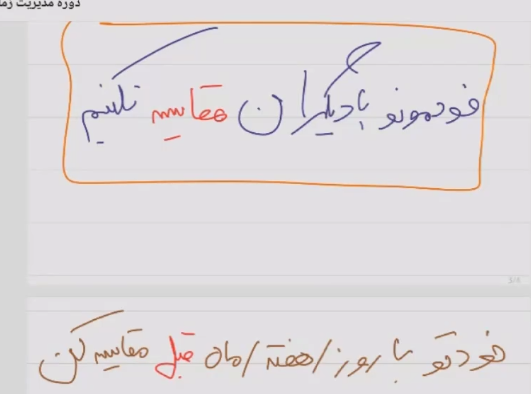 دوره مدیریت زما
خودمونو با دیگران مقایسه نکنیم
3/5
خودتو با روز/هفته/ماه قبل مقایسه کن